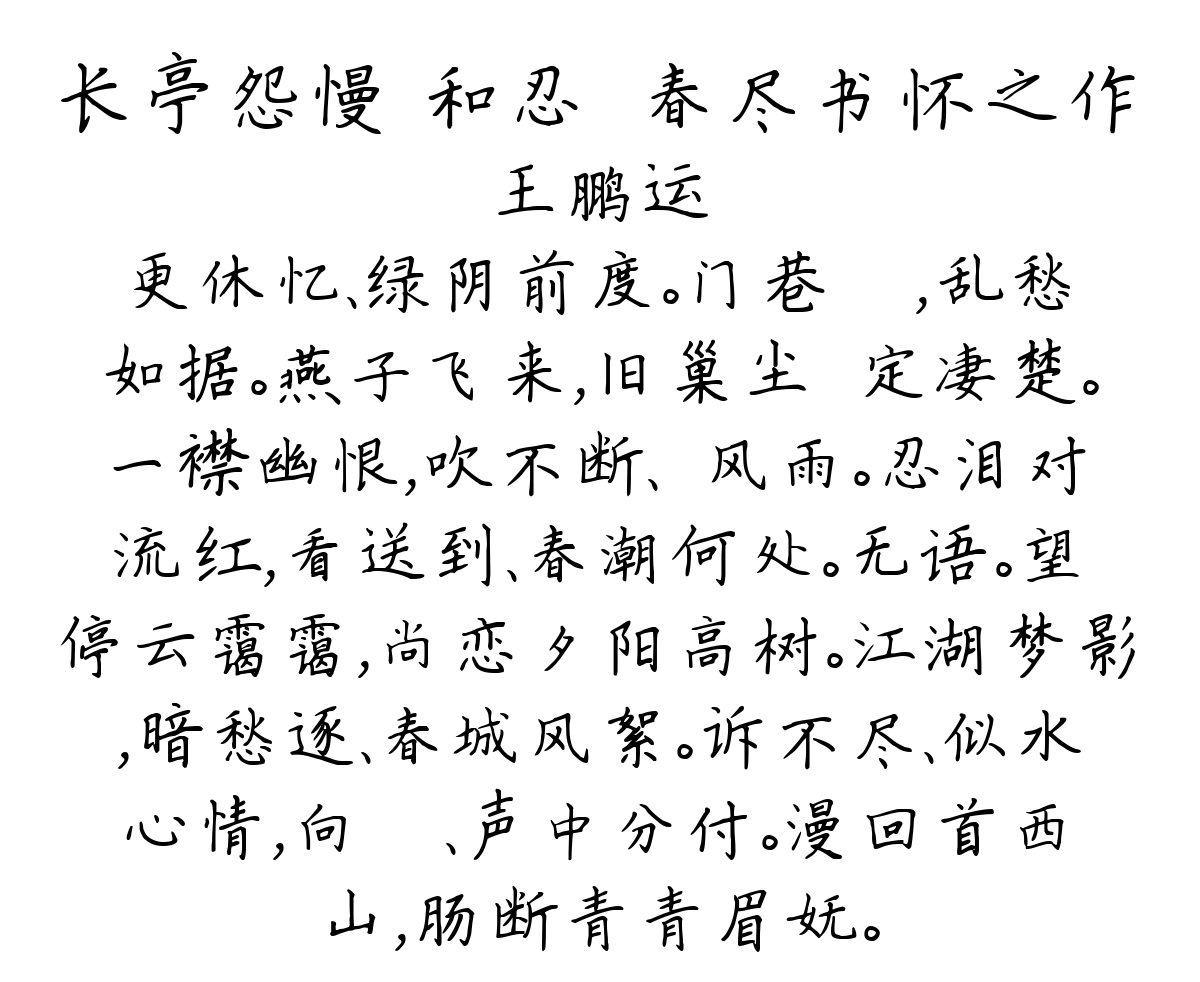 长亭怨慢 和忍 春尽书怀之作
王鹏运
更休忆、绿阴前度。门巷 ,乱愁
如据。燕子飞来,旧巢尘 定凄楚。
一襟幽恨,吹不断、 风雨。忍泪对
流红,看送到、春潮何处。无语。望
停云霭霭,尚恋夕阳高树。江湖梦影
,暗愁逐、春城风絮。诉不尽、似水
心情,向 、声中分付。漫回首西
山,肠断青青眉妩。